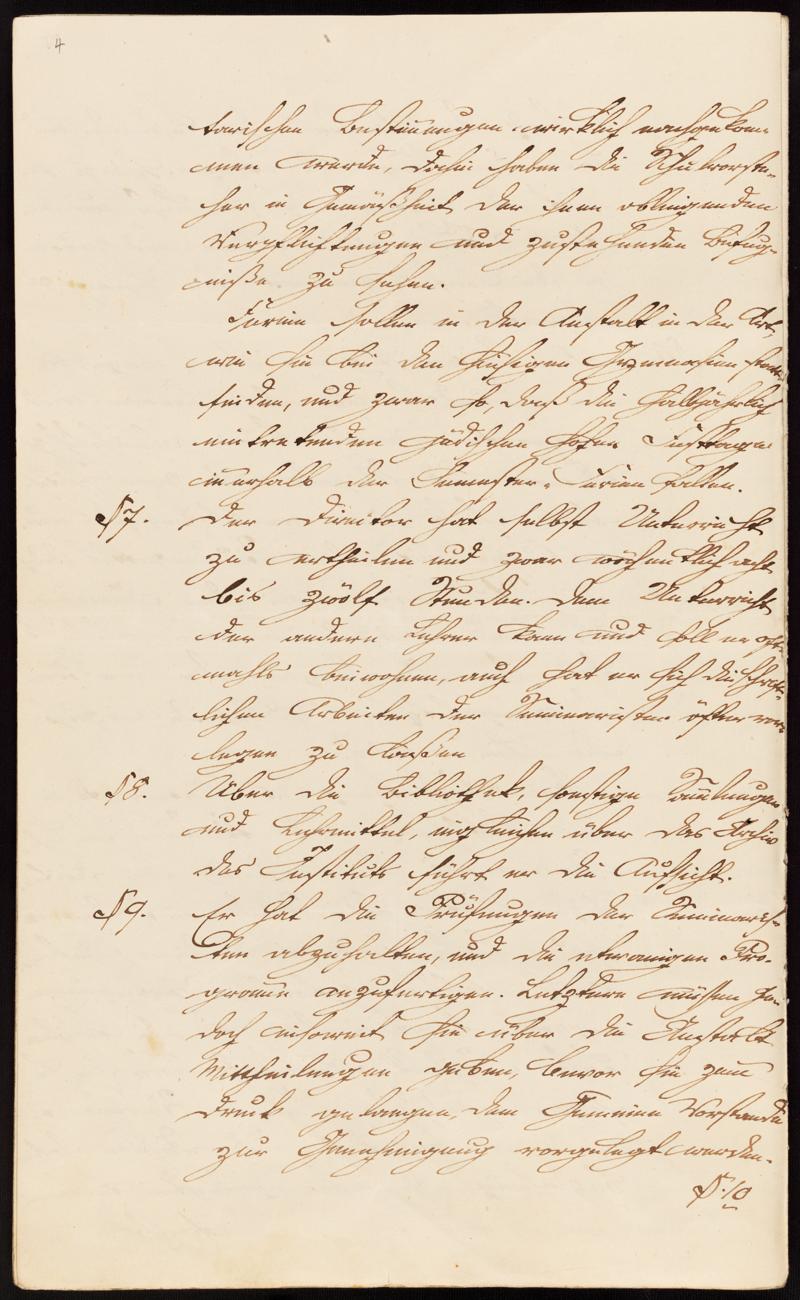 4
tarischen Bestimmungen wirklich nachgekom-
men werde, dahin haben die Schulvorste-
her in Gemäßheit der ihnen obliegenden
Verpflichtungen und zustehenden Befug-
niße zu sehen.
Ferien sollen in der Anstalt in der Art,
wie sie bei den hiesigen Gymnasien statt
finden, und zwar so, daß die halbjährlich
eintretenden jüdischen hohen Festtage
innerhalb der Semester-Ferien fallen.
§7. Der Director hat selbst Unterricht
zu ertheilen und zwar wöchentlich acht
bis zwölf Stunden. Dem Unterricht
der andern Lehrer kann und soll er oft-
mahls beiwohnen, auch hat er sich die schrift-
lichen Arbeiten der Seminaristen öfter vor-
legen zu laßen
§8. Über die Bibliothek, sonstige Samlungen
und Lehrmittel, ingleichen über das Archiv
des Instituts führt er die Aufsicht.
§9. Er hat die Prüfungen der Seminaris-
ten abzuhalten, und die etwanigen Pro-
gramme anzufertigen. Letztere müßen je-
doch insoweit sie über die Anstalt
Mittheilungen geben, bevor sie zum
Druck gelangen, dem Gemeine Vorstande
zur Genehmigung vorgelegt werden.
§.10